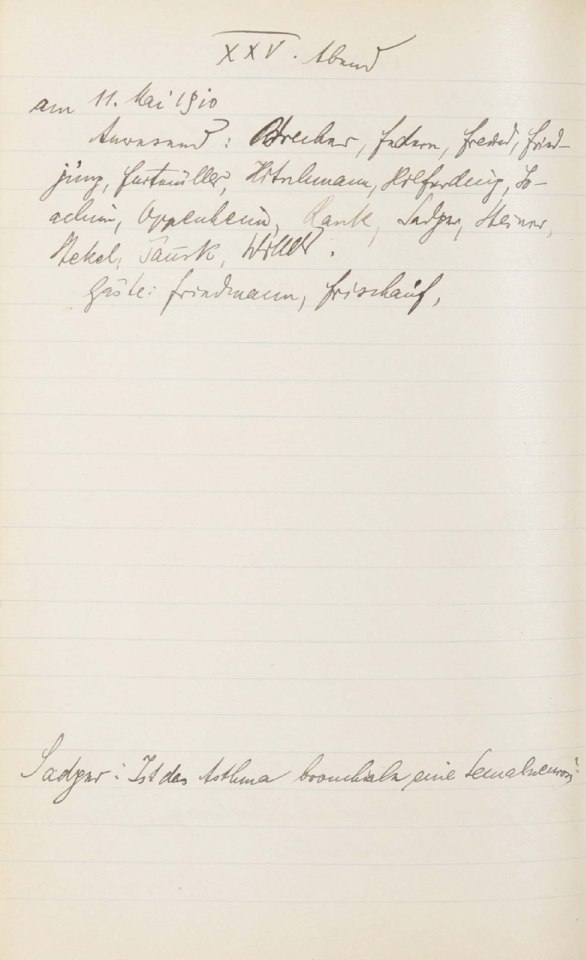 XXV. Abend
am 11. Mai 1910
Anwesend: Federn, Freud, Fried-
jung, Furtmüller, Hitschmann, Hilferding, Jo-
achim, Oppenheim, Rank, Sadger, Steiner,
Stekel, Tausk,
Gäste: Friedmann, Frischauf,
Sadger: Ist das Asthma bronchiale eine Sexualneurose?